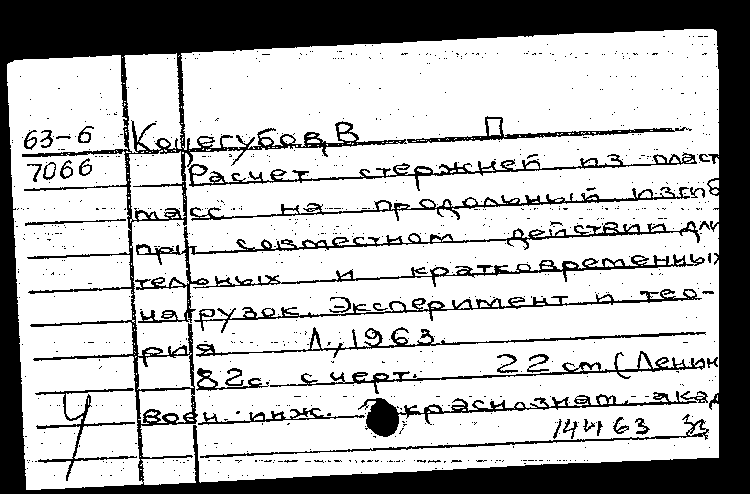 63-6 Кочегубов, В П
7066 Расчет стержней из пласт
масс на продольный изгиб
при совместном действии дли
тельных и кратковременных
нагрузок. Эксперимент и тео-
рия Л., 1963.
82с. с черт. 22 см (Ленин
воен. инж. краснознам. акад
14463